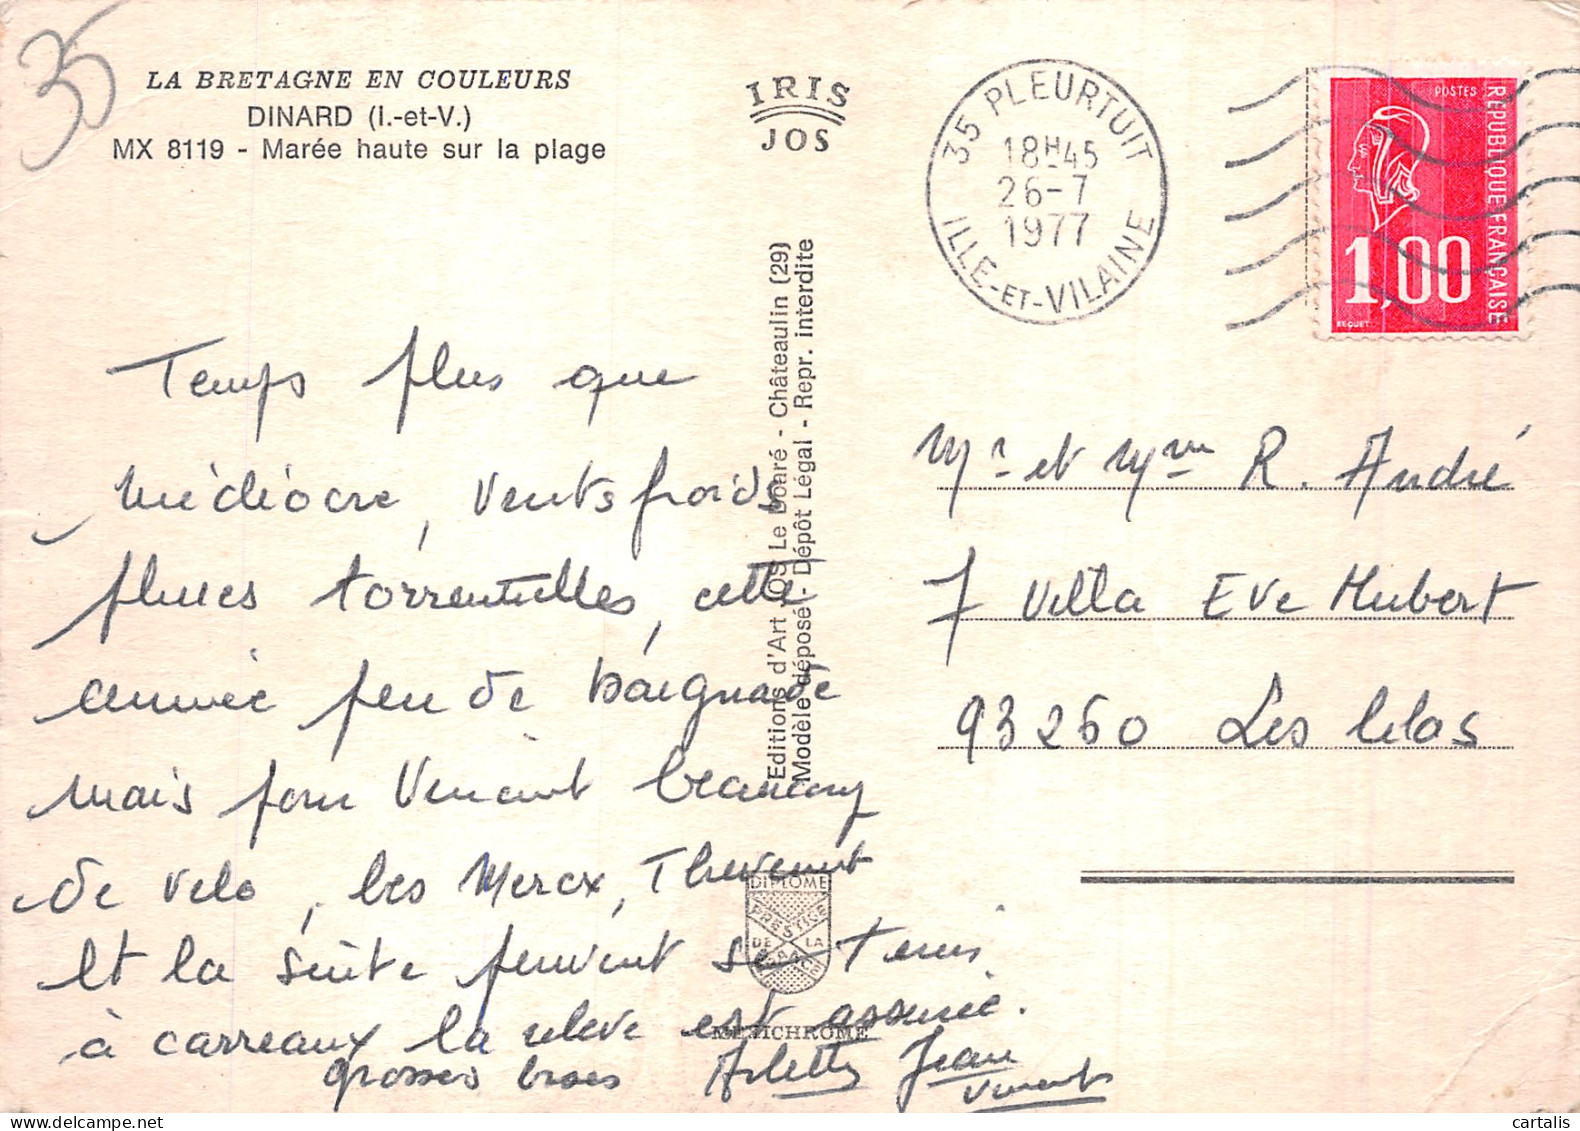 35
LA BRETAGNE EN COULEURS
DINARD (I.-et-V.)
MX 8119 - Marée haute sur la plage
IRIS
JOS
35 PLEURTUIT
18H45
26-7
1977
ILLE-ET-VILAINE
POSTES
REPUBLIQUE FRANÇAISE
1,00
BEQUET
Editions d'Art JOS Le Doaré - Châteaulin (29)
Modèle déposé - Dépôt Légal - Repr. interdite
Temps plus que
médiocre, vents froids
pluies torrentielles, cette
année peu de baignade
mais pour Vincent beaucoup
de velo, les Merckx, Thevenet
et la suite peuvent se tenir
à carreaux la releve est assurée.
grosses bises Arlette Jean
Vincent
Mr et Mme R. André
7 Villa Eve Hubert
93260 Les Lilas
DIPLOME
PRESTIGE
DE LA
FRANCE
MEXICHROME
cartalis
www.delcampe.net